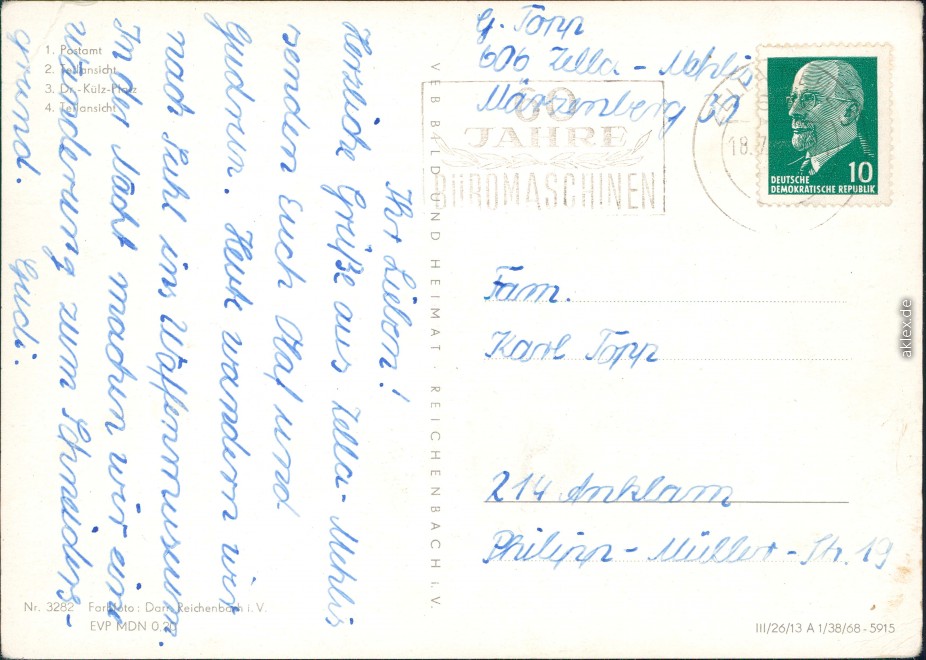 1. Postamt
2. Teilansicht
3. Dr.-Külz-Platz
4. Teilansicht
Ihr Lieben!
Herzliche Grüße aus Zella-Mehlis
senden Euch Olaf und
Gudrun. Heute wandern wir
nach Suhl ins Waffenmuseum.
In der Nacht machen wir eine
Wanderung zum Schneiders-
grund.
Gudi.
Nr. 3282 Farbfoto: Darr, Reichenbach i. V.
EVP MDN 0.20
VEB BILD UND HEIMAT · REICHENBACH i. V.
G. Topp
606 Zella-Mehlis
Märzenberg 39
60
JAHRE
BÜROMASCHINEN
18.7.
10
DEUTSCHE
DEMOKRATISCHE REPUBLIK
Fam.
Karl Topp
214 Anklam
Philipp-Müller-Str. 19
III/26/13 A 1/38/68-5915
aklex.de